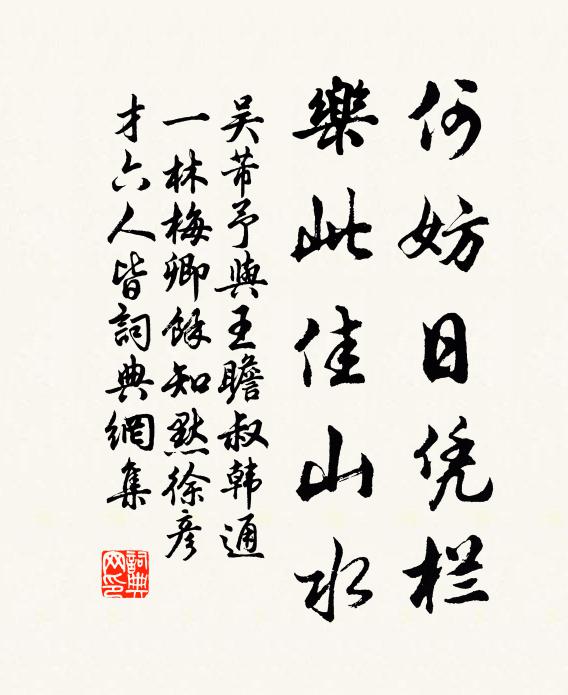 何妨日凭栏
樂此佳山水
吴芾予與王瞻叔韩通
一林梅卿餘知默徐彦
才六人皆詞典網集
詞典网印